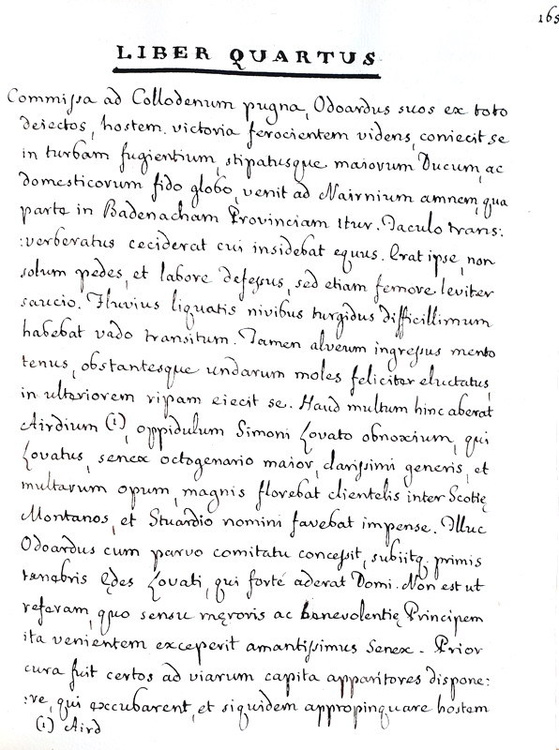 165
LIBER QUARTUS
Commissa ad Collodenum pugna, Odoardus suos ex toto
deiectos, hostem victoria ferocientem videns, coniecit se
in turbam fugientium, stipatusque maiorum Ducum, ac
domesticorum fido globo, venit ad Nairnium amnem, qua
parte in Badenacham Provinciam itur. Iaculo trans:
:verberatus ceciderat cui insidebat equus. Erat ipse, non
solum pedes, et labore defessus, sed etiam femore leviter
saucio. Fluvius liquatis nivibus turgidus difficillimum
habebat vado transitum. Tamen alveum ingressus mento
tenus, obstantesque undarum moles feliciter eluctatus,
in ulteriorem ripam eiecit se. Haud multum hinc aberat
Airdium (1), oppidulum Simoni Lovato obnoxium, qui
Lovatus, senex octogenario maior, clarissimi generis, et
multarum opum, magnis florebat clientelis inter Scotię
Montanos, et Stuardio nomini favebat impense. Illuc
Odoardus cum parvo comitatu concessit, subiitq. primis
tenebris Ędes Lovati, qui fortè aderat Domi. Non est ut
referam, quo sensu męroris ac benevolentię Principem
ita venientem exceperit amantissimus Senex. Prior
cura fuit certos ad viarum capita apparitores dispone:
:re, qui excubarent, et siquidem appropinquare hostem
(1) Aird